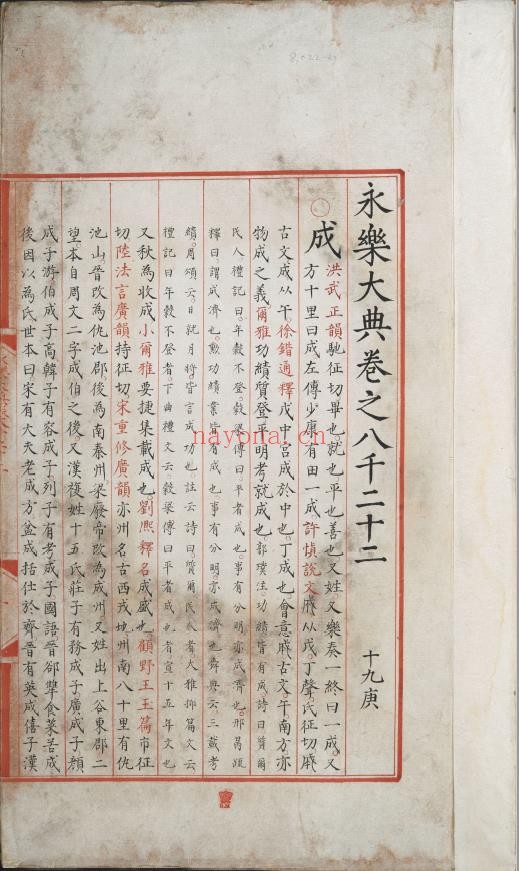 永樂大典卷之八千二十二
十九庚
成
洪武正韻馳征切畢也就也平也善也又姓又樂奏一終曰一成又
方十里曰成左傳少康有田一成許慎說文戚从戊丁聲氏征切戚
古文成从午徐鍇通釋戊中宮成於中也丁成也會意戚古文午南方亦
物成之義爾雅功績質登平明考就成也郭璞注功績皆有成詩曰質爾
民人禮記曰年穀不登穀梁傳曰平者成也事有分明亦成濟也邢昺疏
釋曰謂成濟也勲功績業皆有成也事有分明亦成濟也舜典云三載考
績周頌云日就月將皆言成功也註云詩曰質爾民人者大雅抑篇文云
禮記曰年穀不登者下曲禮文云穀梁傳曰平者成也者宣十五年文也
又秋為收成小爾雅要捷集載成也劉熈釋名成盛也顧野王玉篇市征
切陸法言廣韻持征切宋重修廣韻亦州名古西戎地州南八十里有仇
池山晉改為仇池郡後為南秦州梁廢帝改為成州又姓出上谷東郡二
望本自周文二字成伯之後又漢複姓十五氏莊子有務成子廣成子顏
成子游伯成子高韓子有容成子列子有考成子國語晉郤犨食菜苦成
後因以為氏世本曰宋有大夫老成方盆成括仕於齊晉有英成僖子漢
8,022-23
nayona.cn